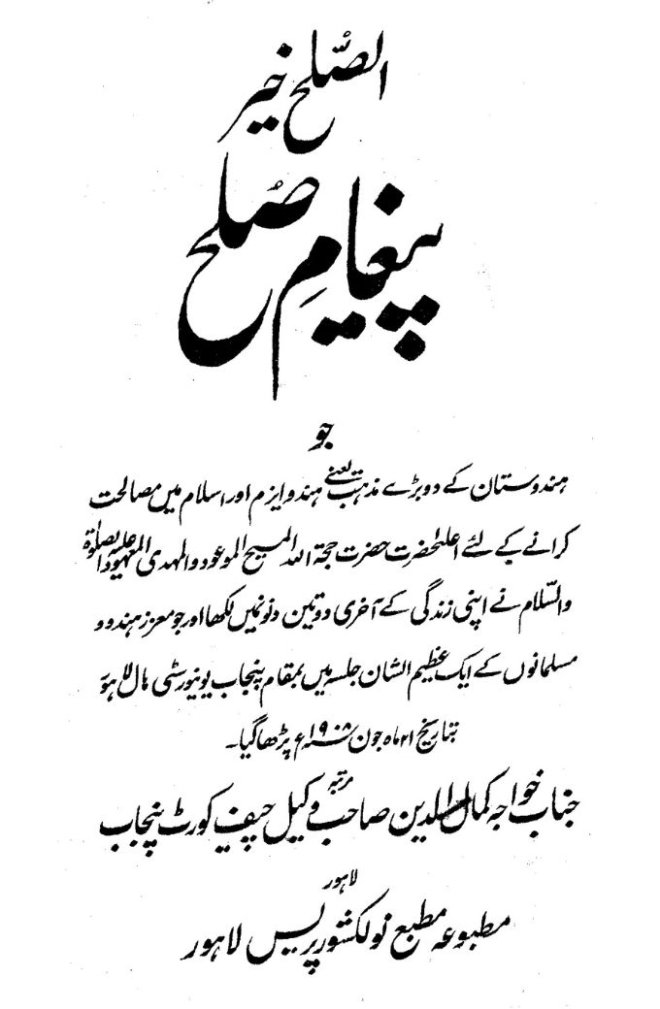 الصُّلح خیر
پیغامِ صُلح
جو
ہندوستان کے دو بڑے مذہب یعنے ہندوایزم اور اسلام میں مصالحت
کرانے کے لئے اعلیٰحضرت حضرت حجۃ اللہ المسیح الموعود والمہدی المعہود علیہ الصلوٰۃ
والسّلام نے اپنی زندگی کے آخری دو تین دنوں میں لکھا اور جو معزز ہندو و
مسلمانوں کے ایک عظیم الشان جلسہ میں بمقام پنجاب یونیورسٹی ہال لاہور
بتاریخ ۲۱ ماہ جون سنہ ۱۹۰۸ء پڑھا گیا۔
مرتبہ
جناب خواجہ کمال الدین صاحب وکیل چیف کورٹ پنجاب
لاہور
مطبوعہ مطبع نولکشور پریس لاہور